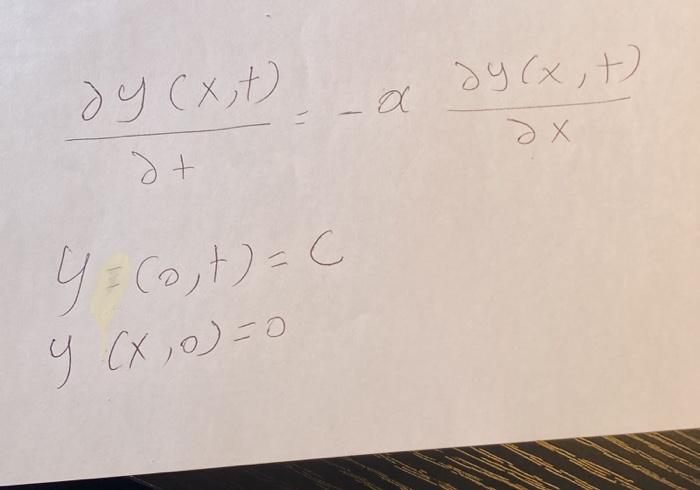 ∂y(x,t)/∂t = -α ∂y(x,t)/∂x
y=(0,t)=C
y(x,0)=0